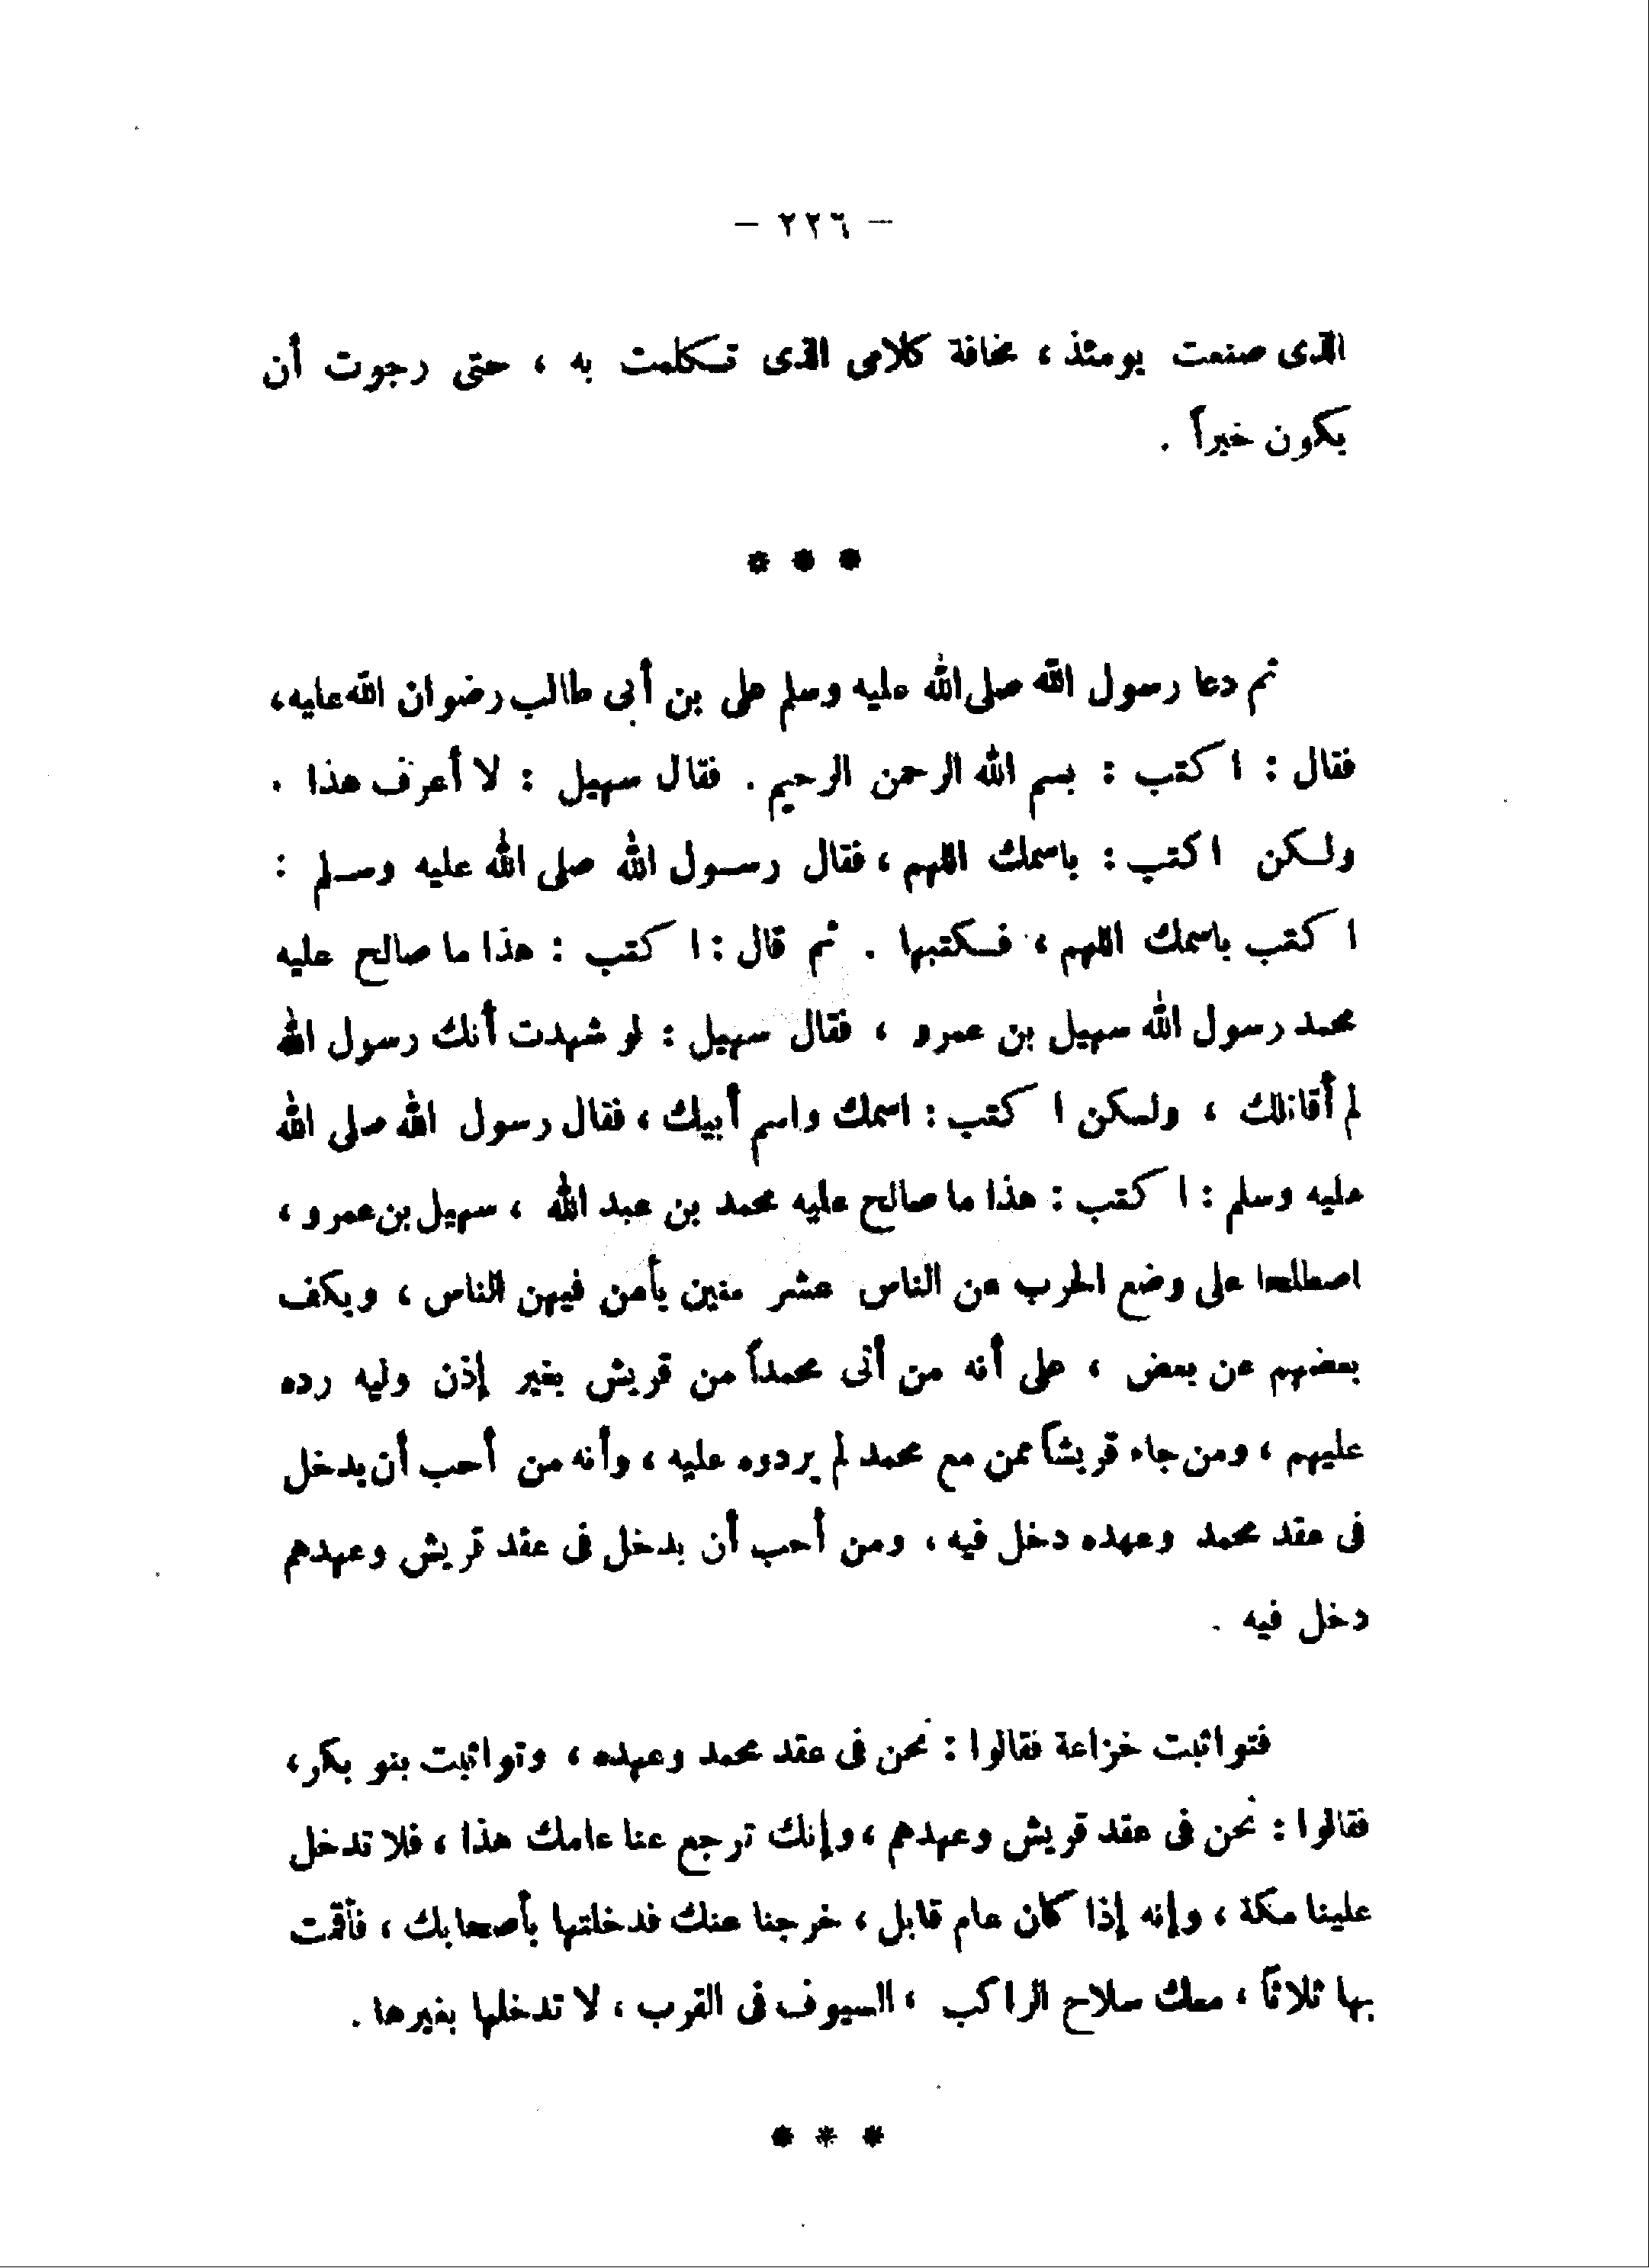 — ٢٢٦ —
الذى صنعت يومئذ ، مخافة كلامى الذى تكلمت به ، حتى رجوت أن
يكون خيراً .
* * *
ثم دعا رسول الله صلى الله عليه وسلم على بن أبى طالب رضوان الله عليه،
فقال : اكتب : بسم الله الرحمن الرحيم . فقال سهيل : لا أعرف هذا .
ولكن اكتب : باسمك اللهم ، فقال رسول الله صلى الله عليه وسلم :
اكتب باسمك اللهم ، فكتبها . ثم قال : اكتب : هذا ما صالح عليه
محمد رسول الله سهيل بن عمرو ، فقال سهيل : لو شهدت أنك رسول الله
لم أقاتلك ، ولكن اكتب : اسمك واسم أبيك ، فقال رسول الله صلى الله
عليه وسلم : اكتب : هذا ما صالح عليه محمد بن عبد الله ، سهيل بن عمرو ،
اصطلحا على وضع الحرب عن الناس عشر سنين يأمن فيهن الناس ، ويكف
بعضهم عن بعض ، على أنه من أتى محمداً من قريش بغير إذن وليه رده
عليهم ، ومن جاء قريشاً ممن مع محمد لم يردوه عليه ، وأنه من أحب أن يدخل
فى عقد محمد وعهده دخل فيه ، ومن أحب أن يدخل فى عقد قريش وعهدهم
دخل فيه .
فتواثبت خزاعة فقالوا : نحن فى عقد محمد وعهده ، وتواثبت بنو بكر ،
فقالوا : نحن فى عقد قريش وعهدهم ، وإنك ترجع عنا عامك هذا ، فلا تدخل
علينا مكة ، وإنه إذا كان عام قابل ، خرجنا عنك فدخلتها بأصحابك ، فأقمت
بها ثلاثاً ، معك سلاح الراكب ، السيوف فى القرب ، لا تدخلها بغيرها .
* * *